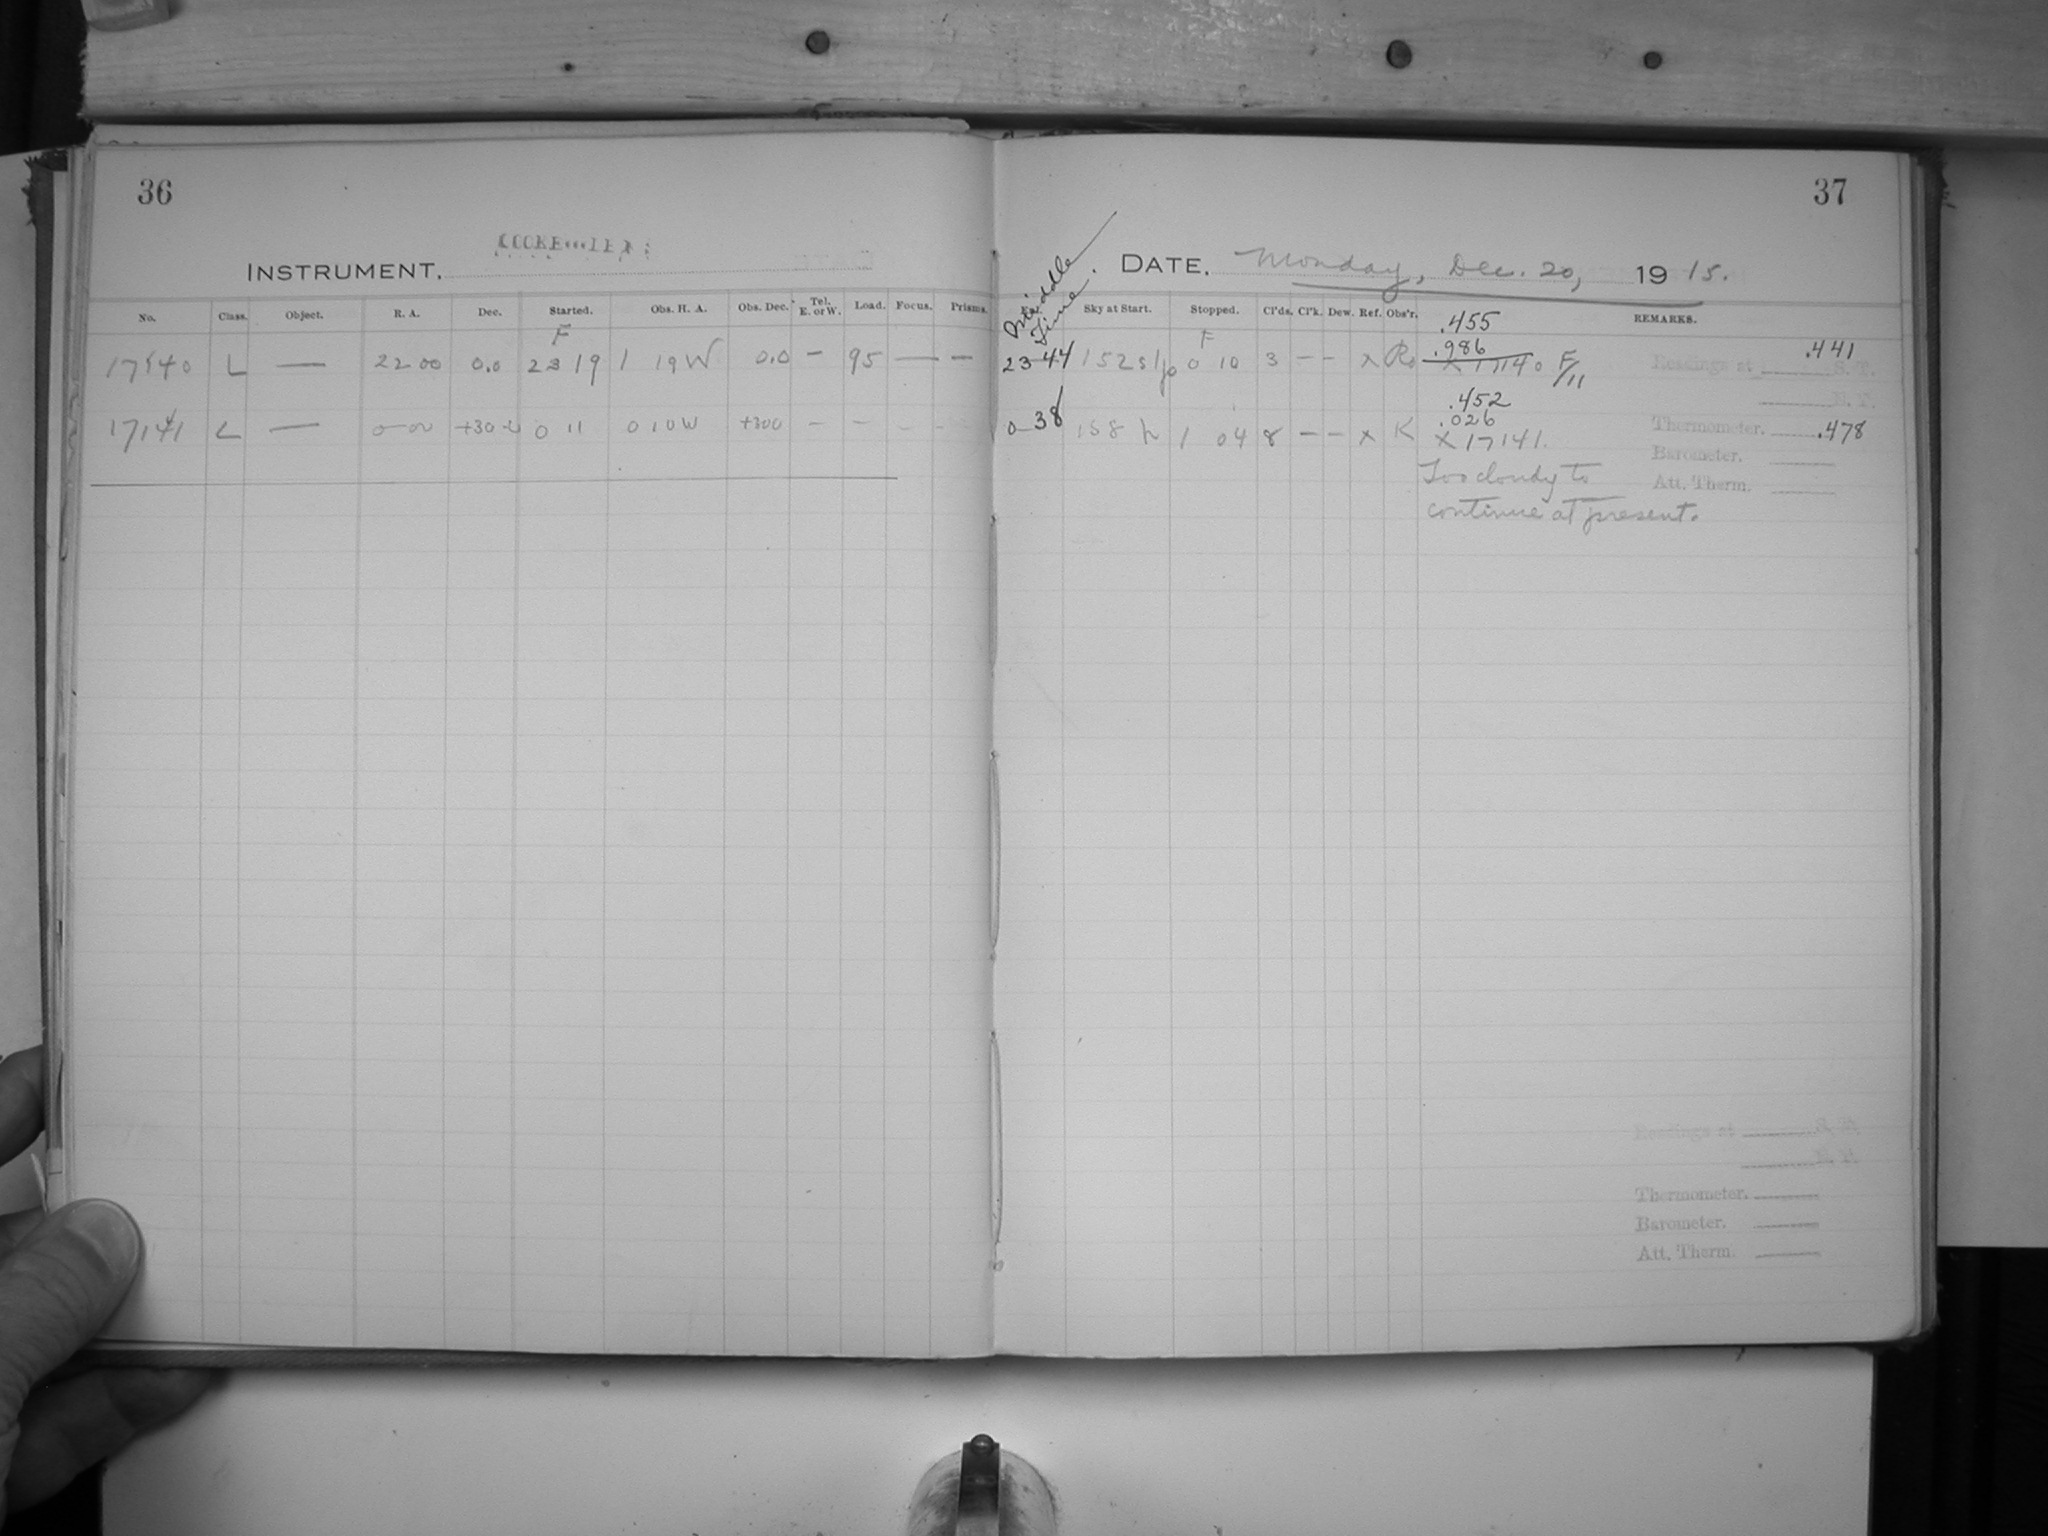 36
INSTRUMENT.
No. Class. Object. R. A. Dec. Started. Obs. H. A. Obs. Dec. Tel. E. or W. Load. Focus. Prisms.
F
17140 L — 22 00 0.0 23 19 1 19 W 0.0 – 95 — –
17141 L — 0 00 +30 0 11 0 10 W +30 0 – –
37
DATE. Monday, Dec. 20, 1915.
Middle
Time.
Sky at Start. Stopped. Cl'ds. Cl'k. Dew. Ref. Obs'r. REMARKS.
.455
F
.986 .441
23 44 0 10 3 – – x Ro x 17140 F/11
Readings at S. T.
.452
.026
0 38 158 h 1 04 8 – – x K x 17141.
Thermometer. .478
Barometer.
Too cloudy to
Att. Therm.
continue at present.
Readings at
Thermometer.
Barometer.
Att. Therm.